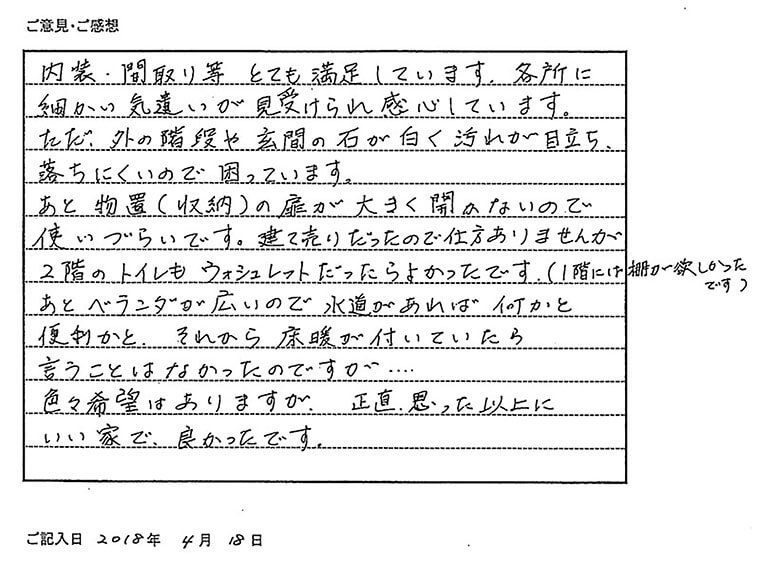 ご意見・ご感想
内装・間取り等 とても満足しています。各所に
細かい気遣いが見受けられ感心しています。
ただ、外の階段や玄関の石が白く汚れが目立ち、
落ちにくいので困っています。
あと物置(収納)の扉が大きく開かないので
使いづらいです。建て売りだったので仕方ありませんが
2階のトイレもウォシュレットだったらよかったです。(1階には棚が欲しかった
です)
あとベランダが広いので水道があれば何かと
便利かと。それから床暖が付いていたら
言うことはなかったのですが‥‥
色々希望はありますが、正直、思った以上に
いい家で、良かったです。
ご記入日 2018年 4月 18日